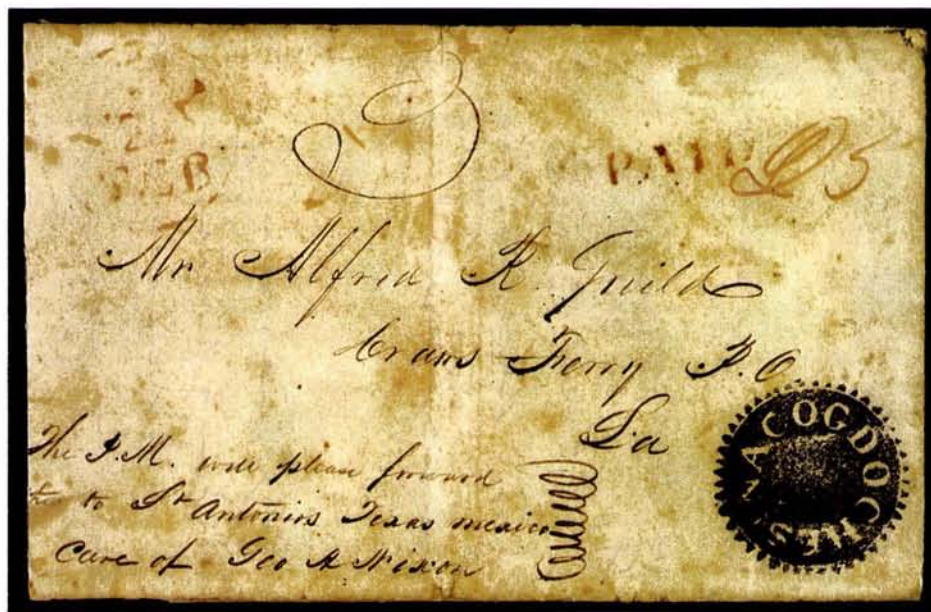 FEB
PAID 25
Mr Alfred K. Guild
Crows Ferry P.O
La
The P.M. will please forward
to St Antonios Texas mexico
Care of Geo A Nixon
NACOGDOCHES